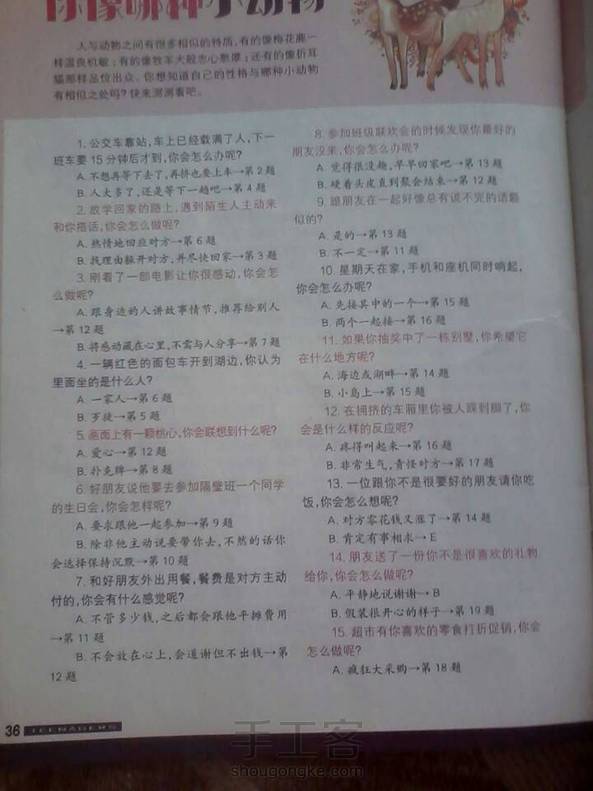 你像哪种小动物
人与动物之间有很多相似的特质,有的像梅花鹿一
样温良机敏;有的像牧羊犬般忠心憨厚;还有的像折耳
猫那样品位出众。你想知道自己的性格与哪种小动物
有相似之处吗?快来测测看吧。
1. 公交车靠站,车上已经载满了人,下一
班车要15分钟后才到,你会怎么办呢?
A. 不想再等下去了,再挤也要上车→第2题
B. 人太多了,还是等下一趟吧→第4题
2. 放学回家的路上,遇到陌生人主动来
和你搭话,你会怎么做呢?
A. 热情地回应对方→第6题
B. 找理由躲开对方,并尽快回家→第3题
3. 刚看了一部电影让你很感动,你会怎
么做呢?
A. 跟身边的人讲故事情节,推荐给别人
→第12题
B. 将感动藏在心里,不需与人分享→第7题
4. 一辆红色的面包车开到湖边,你认为
里面坐的是什么人?
A. 一家人→第6题
B. 歹徒→第5题
5. 画面上有一颗桃心,你会联想到什么呢?
A. 爱心→第12题
B. 扑克牌→第8题
6. 好朋友说他要去参加隔壁班一个同学
的生日会,你会怎样呢?
A. 要求跟他一起参加→第9题
B. 除非他主动说要带你去,不然的话你
会选择保持沉默→第10题
7. 和好朋友外出用餐,餐费是对方主动
付的,你会有什么感觉呢?
A. 不管多少钱,之后都会跟他平摊费用
→第11题
B. 不会放在心上,会道谢但不出钱→第
12题
8. 参加班级联欢会的时候发现你最好的
朋友没来,你会怎么办呢?
A. 觉得很没趣,早早回家吧→第13题
B. 硬着头皮直到聚会结束→第12题
9. 跟朋友在一起好像总有说不完的话题
似的?
A. 是的→第13题
B. 不一定→第11题
10. 星期天在家,手机和座机同时响起,
你会怎么办呢?
A. 先接其中的一个→第15题
B. 两个一起接→第16题
11. 如果你抽奖中了一栋别墅,你希望它
在什么地方呢?
A. 海边或湖畔→第14题
B. 小岛上→第15题
12. 在拥挤的车厢里你被人踩到脚了,你
会是什么样的反应呢?
A. 疼得叫起来→第16题
B. 非常生气,责怪对方→第17题
13. 一位跟你不是很要好的朋友请你吃
饭,你会怎么想呢?
A. 对方零花钱又涨了→第14题
B. 肯定有事相求→E
14. 朋友送了一份你不是很喜欢的礼物
给你,你会怎么做呢?
A. 平静地说谢谢→B
B. 假装很开心的样子→第19题
15. 超市有你喜欢的零食打折促销,你会
怎么做呢?
A. 疯狂大采购→第18题
36 TEENAGERS
手工客
shougongke.com